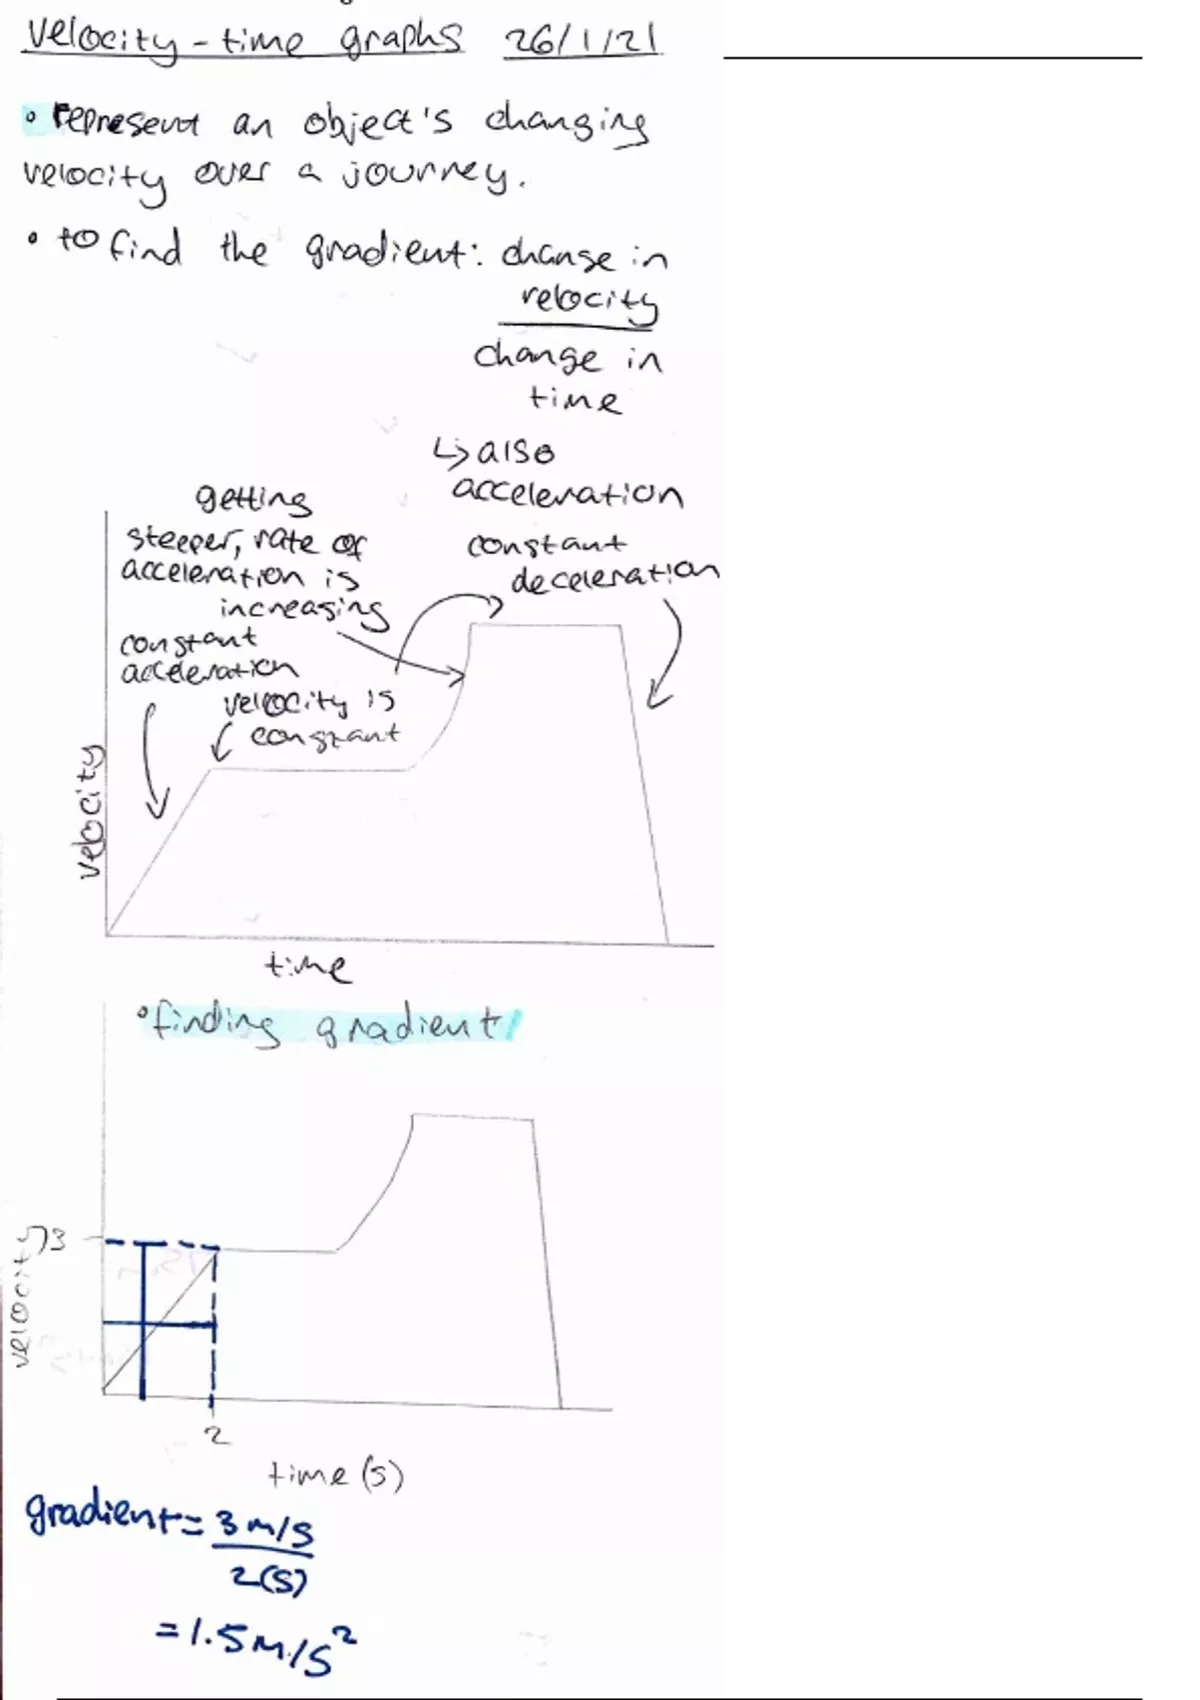 velocity - time graphs 26/1/21
• represent an object's changing
velocity over a journey.
• to find the gradient: change in
velocity
change in
time
↳ also
acceleration
getting
steeper, rate of
acceleration is
increasing
constant
deceleration
constant
acceleration
velocity is
constant
velocity
time
• finding gradient
velocity
3
2
time (s)
gradient = 3 m/s
2(s)
= 1.5 m/s²